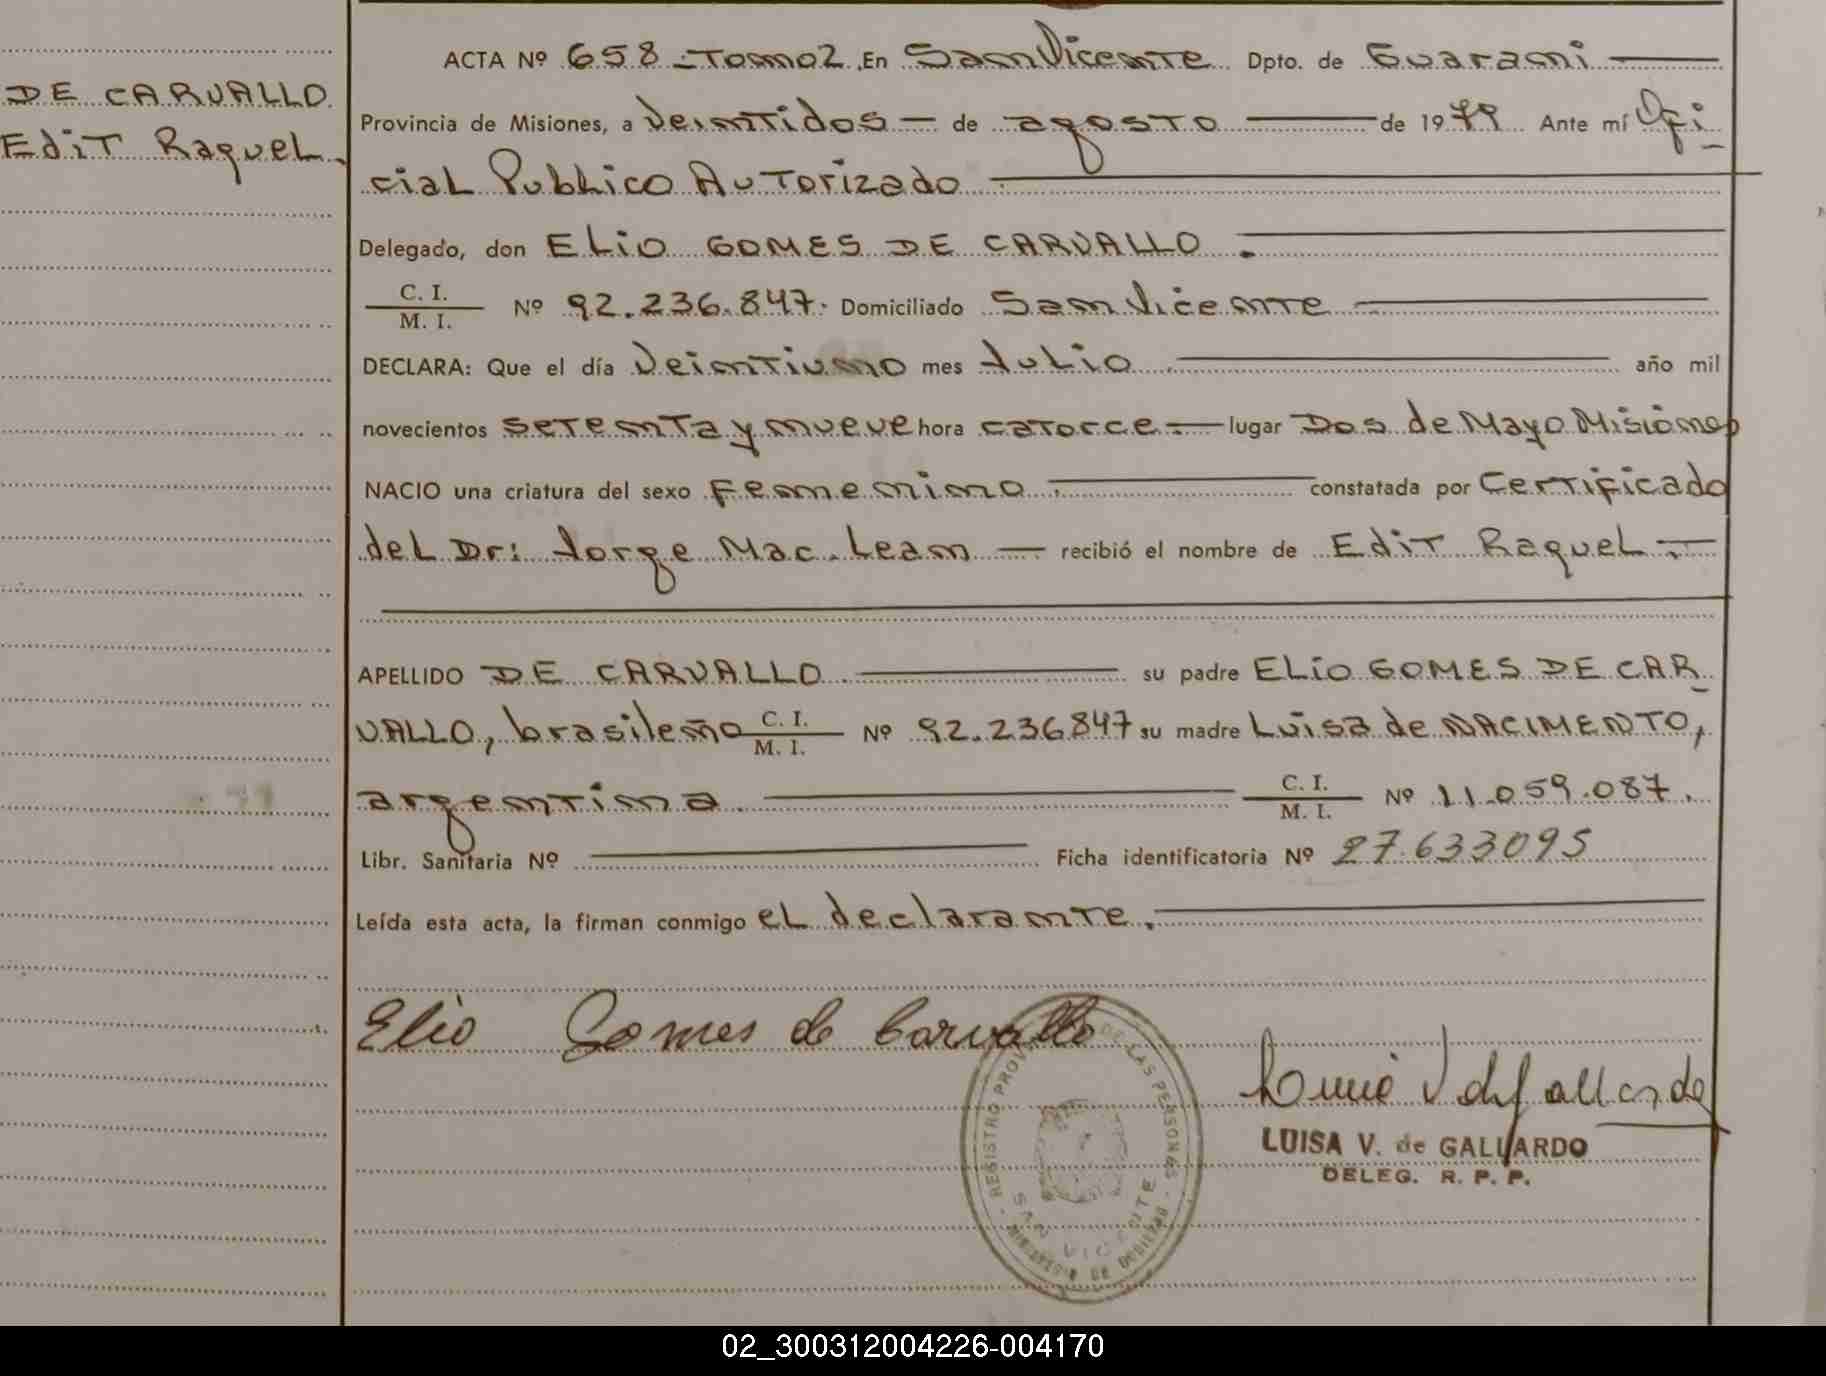 DE CARVALLO
Edit Raquel.
ACTA Nº 658 - Tomo 2. En San Vicente Dpto. de Guarani
Provincia de Misiones, a Veintidos de agosto de 1979 Ante mí Ofi
cial Publico Autorizado
Delegado, don ELIO GOMES DE CARVALLO.
C. I.
M. I. Nº 92.236.847. Domiciliado San Vicente
DECLARA: Que el día Veintiuno mes Julio año mil
novecientos setenta y nueve hora catorce.- lugar Dos de Mayo Misiones
NACIO una criatura del sexo femenino constatada por Certificado
del Dr: Jorge Mac. Lean recibió el nombre de Edit Raquel.
APELLIDO DE CARVALLO su padre ELIO GOMES DE CAR
VALLO, brasileño C. I. M. I. Nº 92.236847 su madre Luisa de NACIMENTO,
argentina C. I. M. I. Nº 11.059.087.
Libr. Sanitaria Nº Ficha identificatoria Nº 27.633095
Leída esta acta, la firman conmigo el declarante.
Elio Gomes de Carvallo
LUISA V. de GALLARDO
DELEG. R. P. P.
REGISTRO PROV DE LAS PERSONAS
SAN VICENTE
02_300312004226-004170